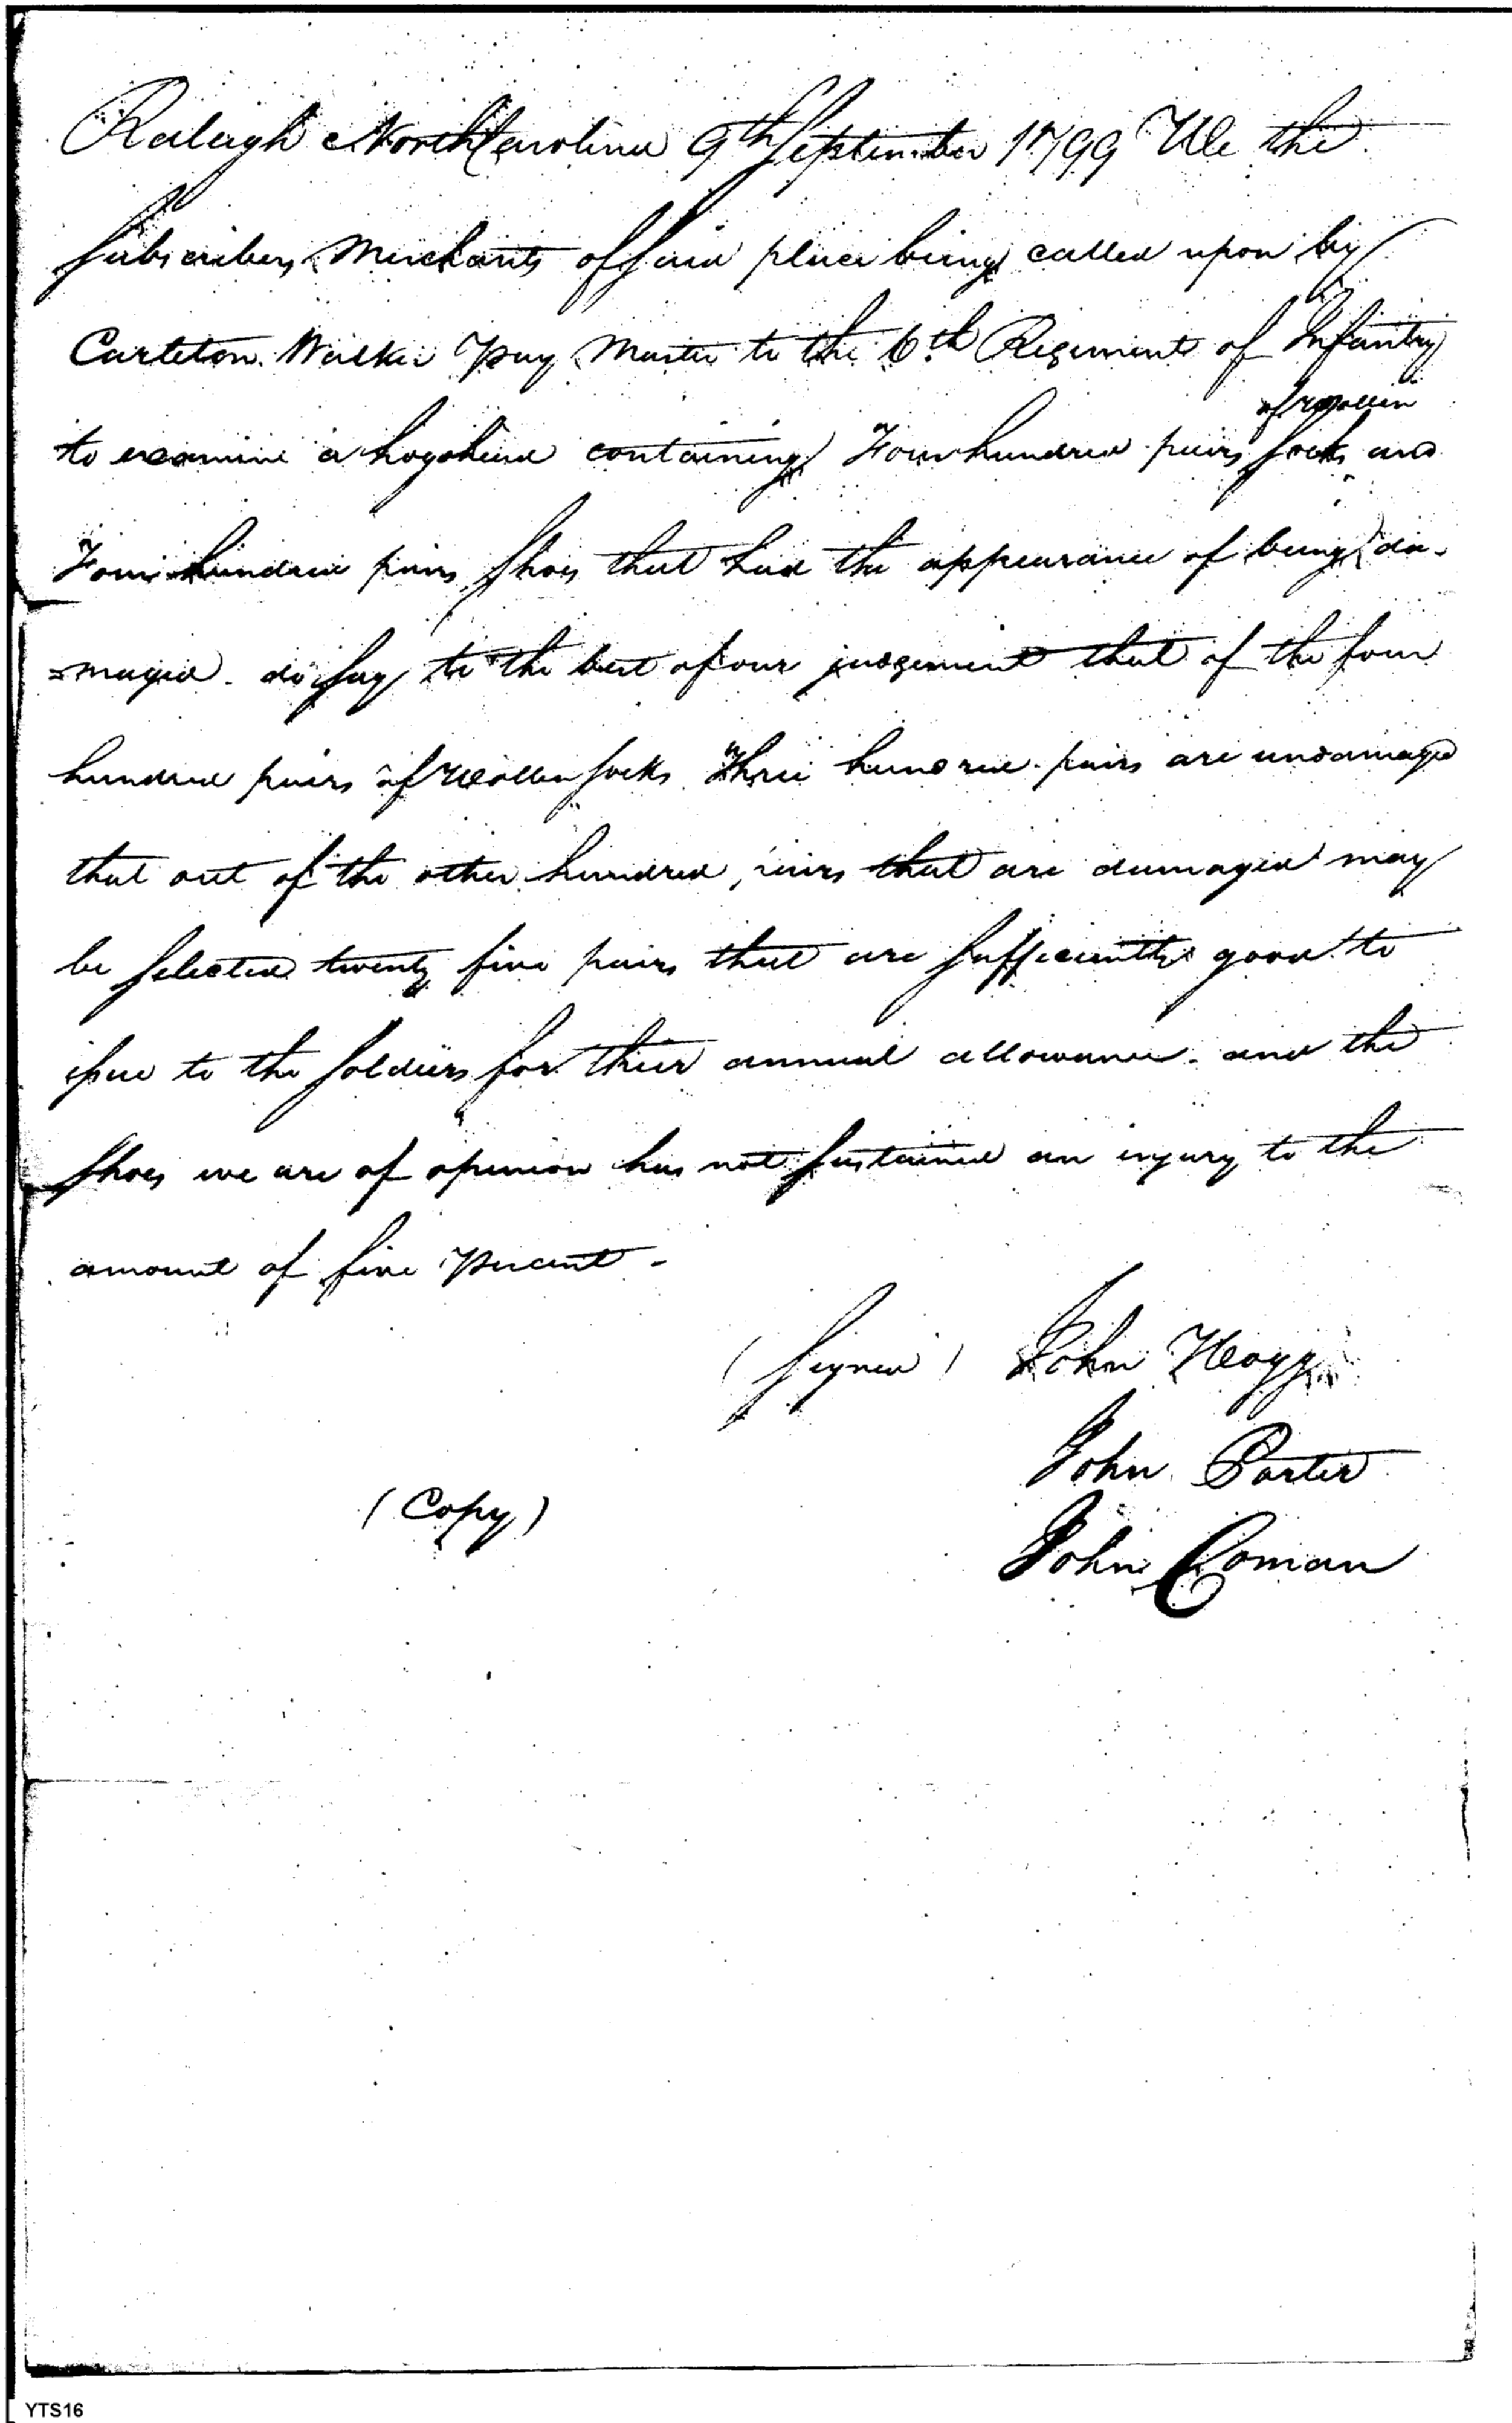 Raleigh North Carolina 9th September 1799 We the
subscribers Merchants of said place being called upon by
Carleton Walker Pay Master to the 6th Regiment of Infantry
of woollen
to examine a hogshead containing Four hundred pairs socks and
Four hundred pairs shoes that had the appearance of being da-
=maged - do say to the best of our judgement that of the four
hundred pairs of woollen socks Three hundred pairs are undamaged
that out of the other hundred pairs that are damaged may
be selected twenty five pairs that are sufficiently good to
issue to the soldiers for thier annual allowance - and the
shoes we are of opinion has not sustained an injury to the
amount of five Percent -
(signed) John Hogg
John Porter
(Copy)
John Coman
YTS16